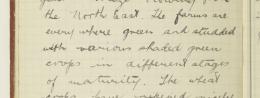 the North East. The farms are
every where green and studded
with various shaded green
crops in different stages
of maturity. The wheat
crops have ripened nicely